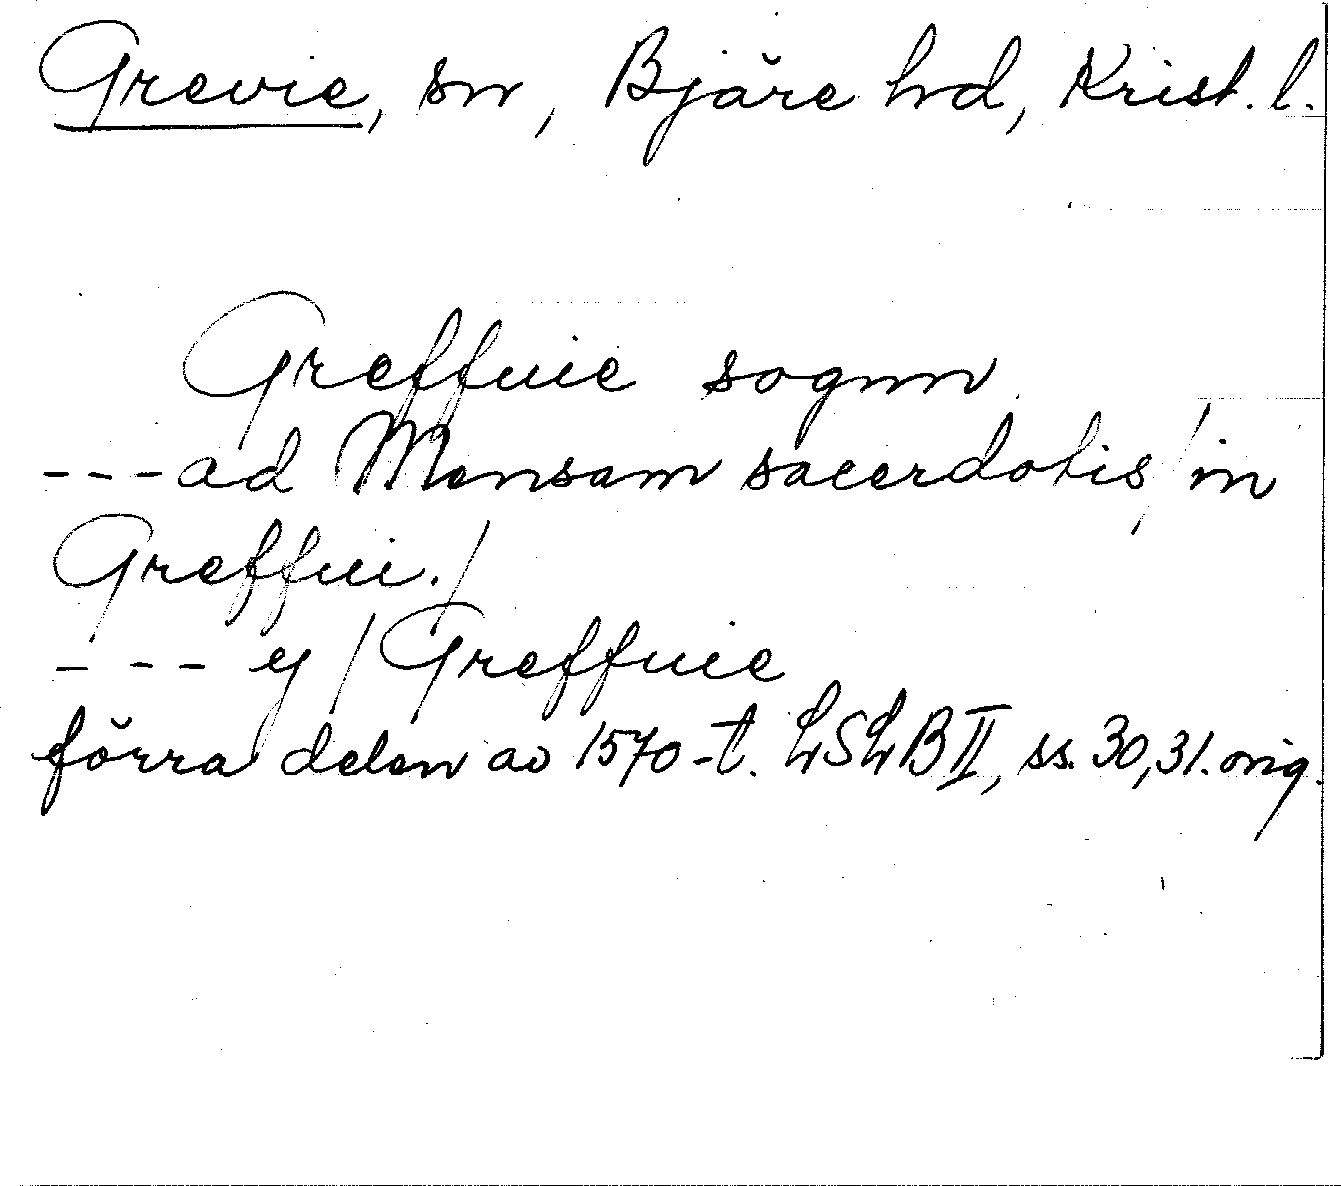 Grevie, sn, Bjäre hd, Krist. l.
Greffuie sognn
---ad Mensam sacerdotis/in
Greffui./
--- y/Greffuie
förra delen av 1570-t. LSLB II, ss. 30,31. orig.